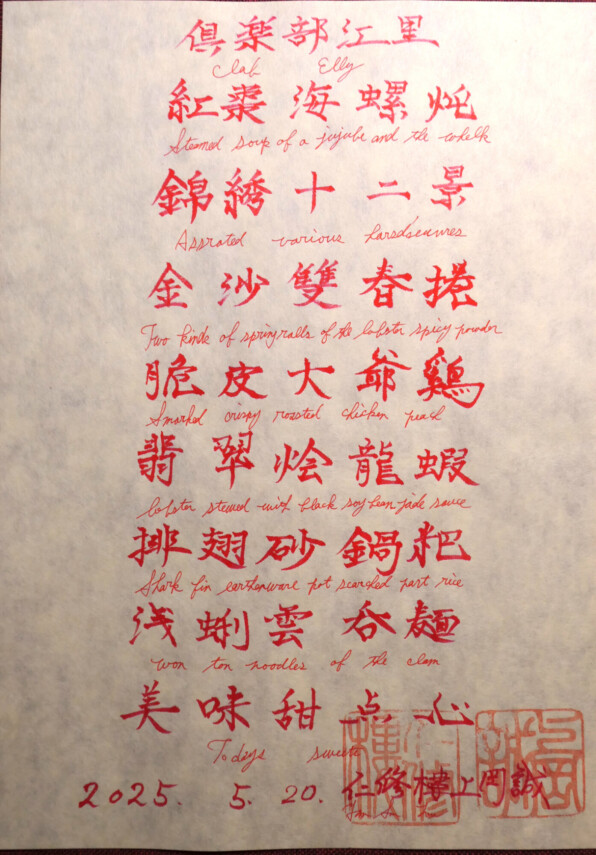 倶楽部江里
Club Elly
紅棗海螺炖
Steamed soup of a jujube and the whelk
錦綉十二景
Assrated various
金沙雙春捲
Two kinds of springralls of the lobster spicy powder
脆皮大爺鶏
Smorked crispy roasted chicken peach
翡翠烩龍蝦
lobster stewed with black soybean jade sauce
排翅砂鍋粑
Shark fin earthenware pot scarched part rice
浅蜊雲呑麺
won ton noodles of the clam
美味甜点心
Todays sweets
2025. 5. 20. 仁修樓上岡誠